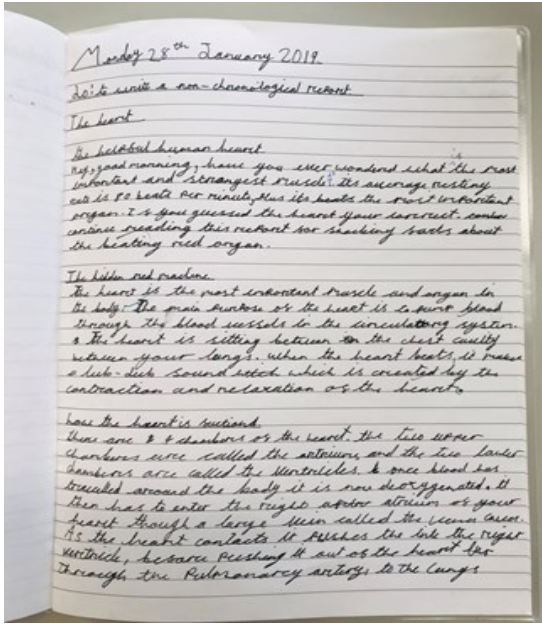 Monday 28th January 2019
LO: to write a non-chronological report
The heart
the helpful human heart
Hey, good morning, have you ever wondered what is the most
important and strongest muscle? Its average resting
rate is 80 beats per minute, plus its beats the most important
organ. If you guessed the heart your correct.
continue reading this report for shocking facts about
the beating red organ.
The hidden red machine
The heart is the most important muscle and organ in
the body. The main purpose of the heart is to pump blood
through the blood vessels in the circulatory system.
The heart is sitting between the chest cavity
between your lungs. when the heart beats, it makes
a lub-dub sound which is created by the
contraction and relaxation of the heart.
how the heart is
there are 4 chambers of the heart. the two upper
chambers are called the atriums, and the two lower
chambers are called the Ventricles. once blood has
travelled around the body it is now deoxygenated. It
then has to enter the right atrium of your
heart though a large vein called the vena cava.
As the heart contacts it pushes the into the right
ventricle, before pushing it out of the heart
Through the Pulmonarcy artery to the lungs